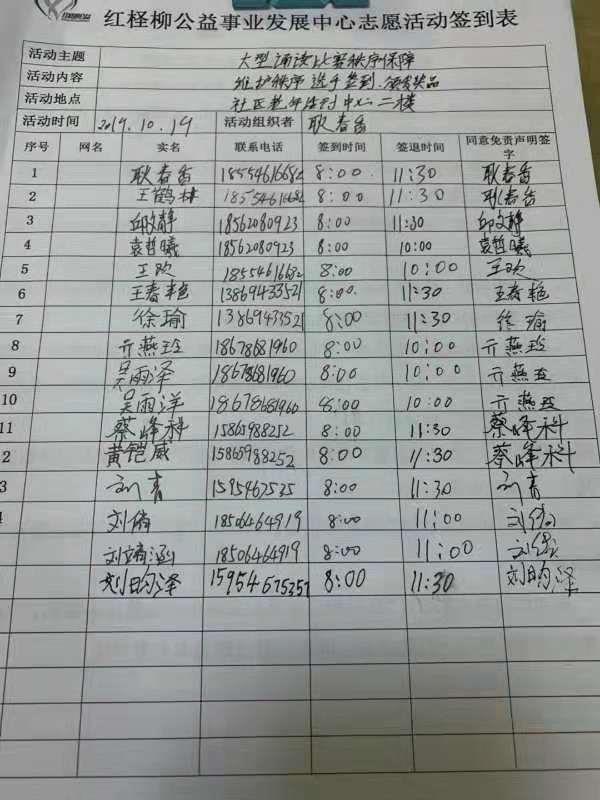 红柽柳公益事业发展中心志愿活动签到表
活动主题 大型诵读比赛秩序保障
活动内容 维护秩序 选手签到 颁发奖品
活动地点 社区老年活动中心二楼
活动时间 2019.10.19 活动组织者 耿春香
序号 网名 实名 联系电话 签到时间 签退时间 同意免责声明签字
1 耿春香 18554616682 8:00 11:30 耿春香
2 王鹤林 18554616682 8:00 11:30 耿春香
3 邱文静 18562080923 8:00 11:30 邱文静
4 袁哲曦 18562080923 8:00 10:00 袁哲曦
5 王欢 18554616682 8:00 10:00 王欢
6 王春艳 13869433521 8:00 11:30 王春艳
7 徐瑜 13869433521 8:00 11:30 徐瑜
8 亓燕玲 18678681960 8:00 10:00 亓燕玲
9 吴雨泽 18678681960 8:00 10:00 亓燕玲
10 吴雨洋 18678681960 8:00 10:00 亓燕玲
11 蔡峰科 15865988252 8:00 11:30 蔡峰科
2 黄铠威 15865988252 8:00 11:30 蔡峰科
3 刘青 1595467525 8:00 11:30 刘青
4 刘倩 18506464919 8:00 11:00 刘倩
刘靖涵 18506464919 8:00 11:00 刘倩
刘昀泽 15954675257 8:00 11:30 刘昀泽